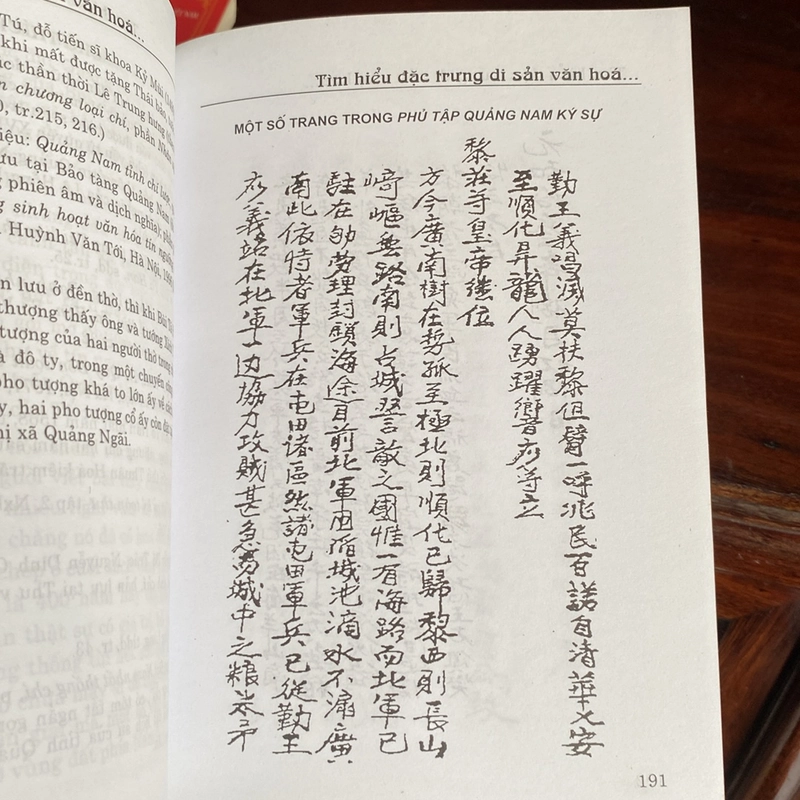 ản văn hoá...
Tú, đỗ tiến sĩ khoa Kỷ Mùi
khi mất được tặng Thái bảo
c thần thời Lê Trung hưng
n chương loại chí, phần Nhân
0, tr.215, 216.)
iệu: Quảng Nam tỉnh chí lược,
ưu tại Bảo tàng Quảng Nam
g phiên âm và dịch nghĩa); phần
g sinh hoạt văn hóa tín
. Huỳnh Văn Tới, Hà Nội,
n lưu ở đền thờ, thì khi Bùi
thượng thấy ông và tướng
tượng của hai người thờ trong
à đô ty, trong một chuyến công
pho tượng khá to lớn ấy về
y, hai pho tượng cổ ấy còn
hị xã Quảng Ngãi.
Tìm hiểu đặc trưng di sản văn hoá...
MỘT SỐ TRANG TRONG PHỦ TẬP QUẢNG NAM KÝ SỰ
勤王義唱滅莫扶黎但臂一呼兆民百諾自清華乂安
至順化昇龍人人踴躍響应等立
黎莊等皇帝継位
方今廣南樹在势孤至極北則順化已歸黎西則長山
崎嶇無路南則占城詟敵之國惟一有海路而北軍已
駐在劬劳理封鎖海途目前北軍困循城池滴水不漏廣
南此依恃者軍兵在屯田諸區然諸屯田軍兵已從勤王
应義站在北軍一边協力攻賊甚急势城中之粮米矛
191